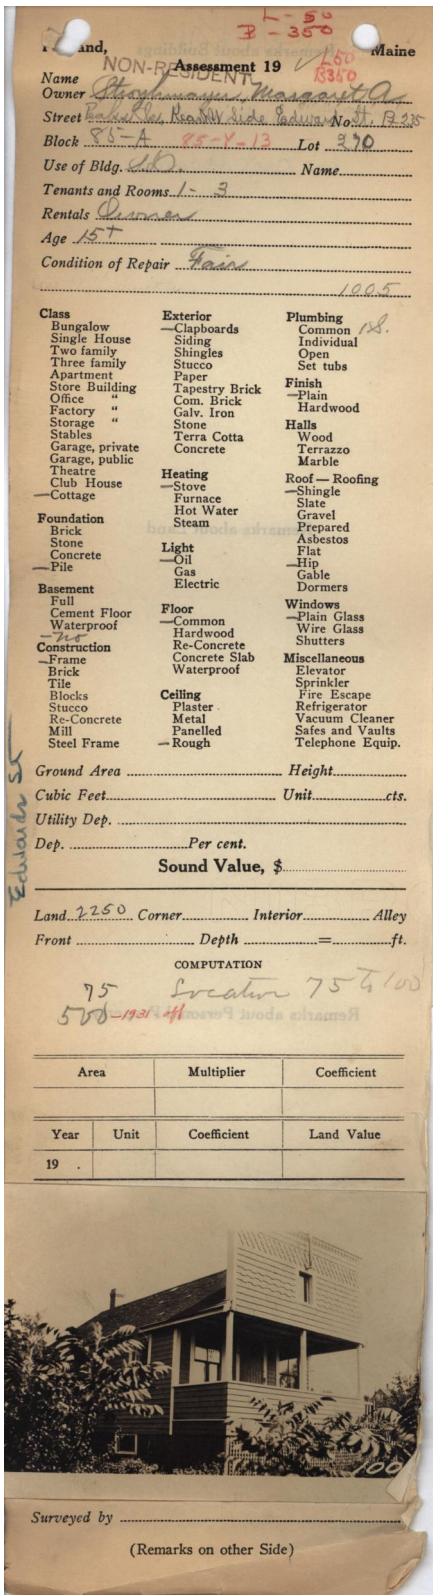 L - 50
B - 350
Maine
NON-RESIDENT
Assessment 19
L50
B350
Name
Owner Margaret A
Street Rear NW Side Edward St. No. B 235
Block 85-A 85-Y-13 Lot 270
Use of Bldg. Name
Tenants and Rooms 1 - 3
Rentals Owner
Age 15+
Condition of Repair Fair
1005
Class
Bungalow
Single House
Two family
Three family
Apartment
Store Building
Office "
Factory "
Storage "
Stables
Garage, private
Garage, public
Theatre
Club House
Cottage
Foundation
Brick
Stone
Concrete
Pile
Basement
Full
Cement Floor
Waterproof
no
Construction
Frame
Brick
Tile
Blocks
Stucco
Re-Concrete
Mill
Steel Frame
Exterior
Clapboards
Siding
Shingles
Stucco
Paper
Tapestry Brick
Com. Brick
Galv. Iron
Stone
Terra Cotta
Concrete
Heating
Stove
Furnace
Hot Water
Steam
Light
Oil
Gas
Electric
Floor
Common
Hardwood
Re-Concrete
Concrete Slab
Waterproof
Ceiling
Plaster
Metal
Panelled
Rough
Plumbing
Common
Individual
Open
Set tubs
Finish
Plain
Hardwood
Halls
Wood
Terrazzo
Marble
Roof — Roofing
Shingle
Slate
Gravel
Prepared
Asbestos
Flat
Hip
Gable
Dormers
Windows
Plain Glass
Wire Glass
Shutters
Miscellaneous
Elevator
Sprinkler
Fire Escape
Refrigerator
Vacuum Cleaner
Safes and Vaults
Telephone Equip.
Edwards St
Ground Area Height
Cubic Feet Unit cts.
Utility Dep.
Dep. Per cent.
Sound Value, $
Land 2250 Corner Interior Alley
Front Depth = ft.
COMPUTATION
75 Location 75 to 100
500 -1931 off
Area Multiplier Coefficient
Year Unit Coefficient Land Value
19 .
100
Surveyed by
(Remarks on other Side)